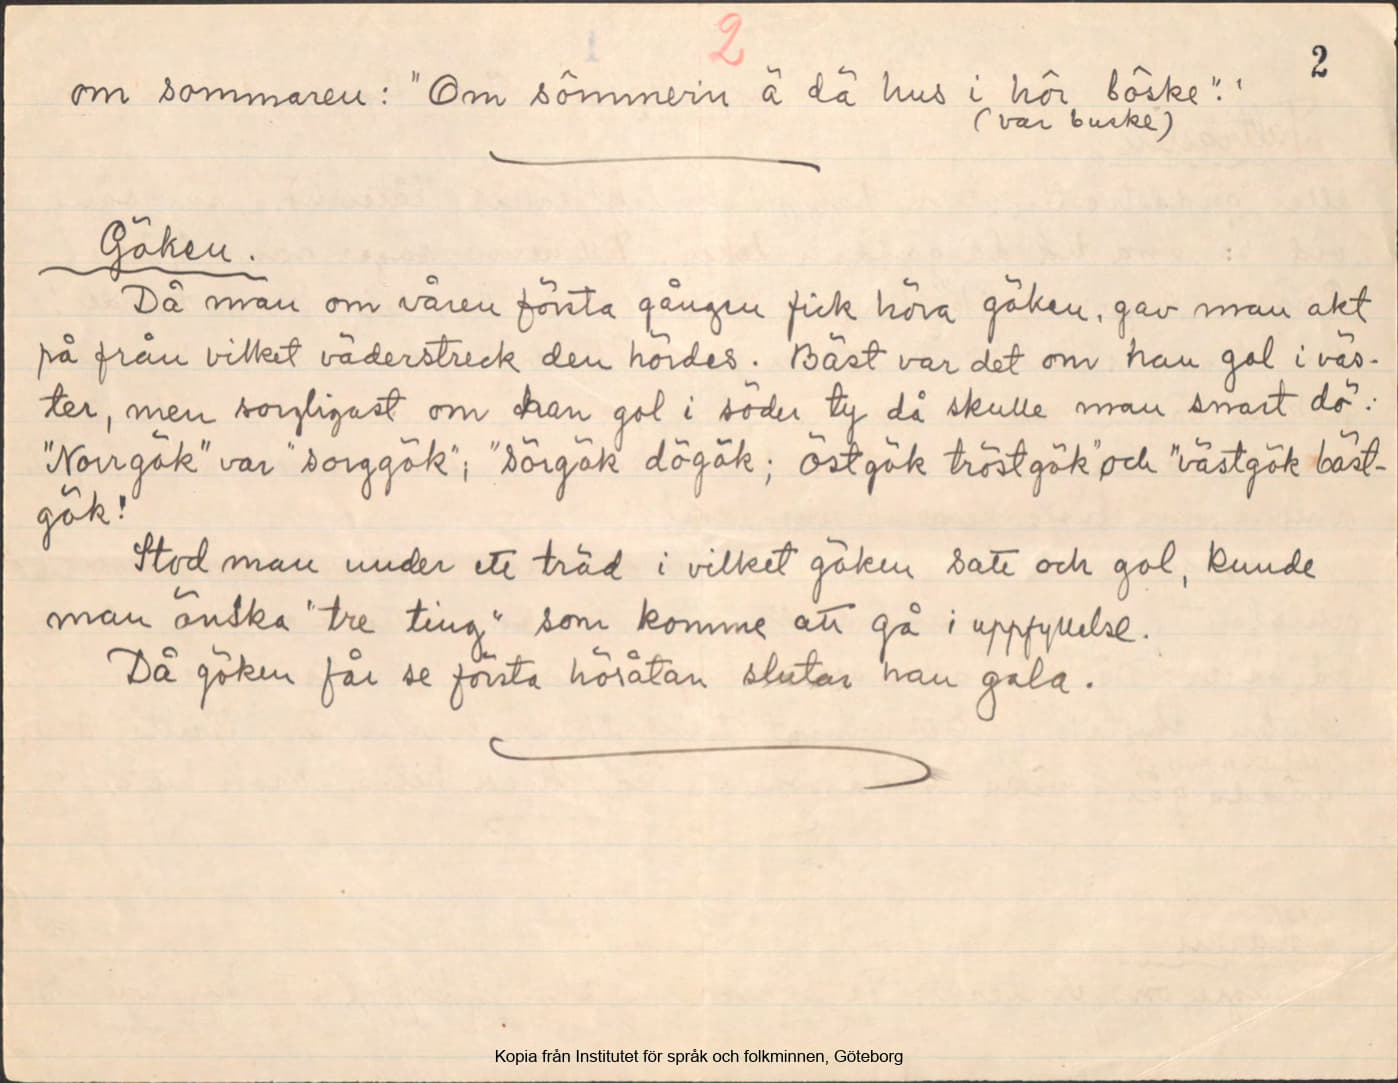 2
2
om sommaren: "Om sömmerin ä dä hus i hör böske".'
(var buske)
Göken.
Då man om våren första gången fick höra göken, gav man akt
på från vilket väderstreck den hördes. Bäst var det om han gol i väs-
ter, men sorgligast om han gol i söder ty då skulle man snart dö:
"Norrgök" var "sorggök"; "Sörgök dögök; östgök tröstgök" och "västgök bäst-
gök!
Stod man under ett träd i vilket göken satt och gol, kunde
man önska "tre ting" som komme att gå i uppfyllelse.
Då göken får se första hösåtan slutar han gala.
Kopia från Institutet för språk och folkminnen, Göteborg